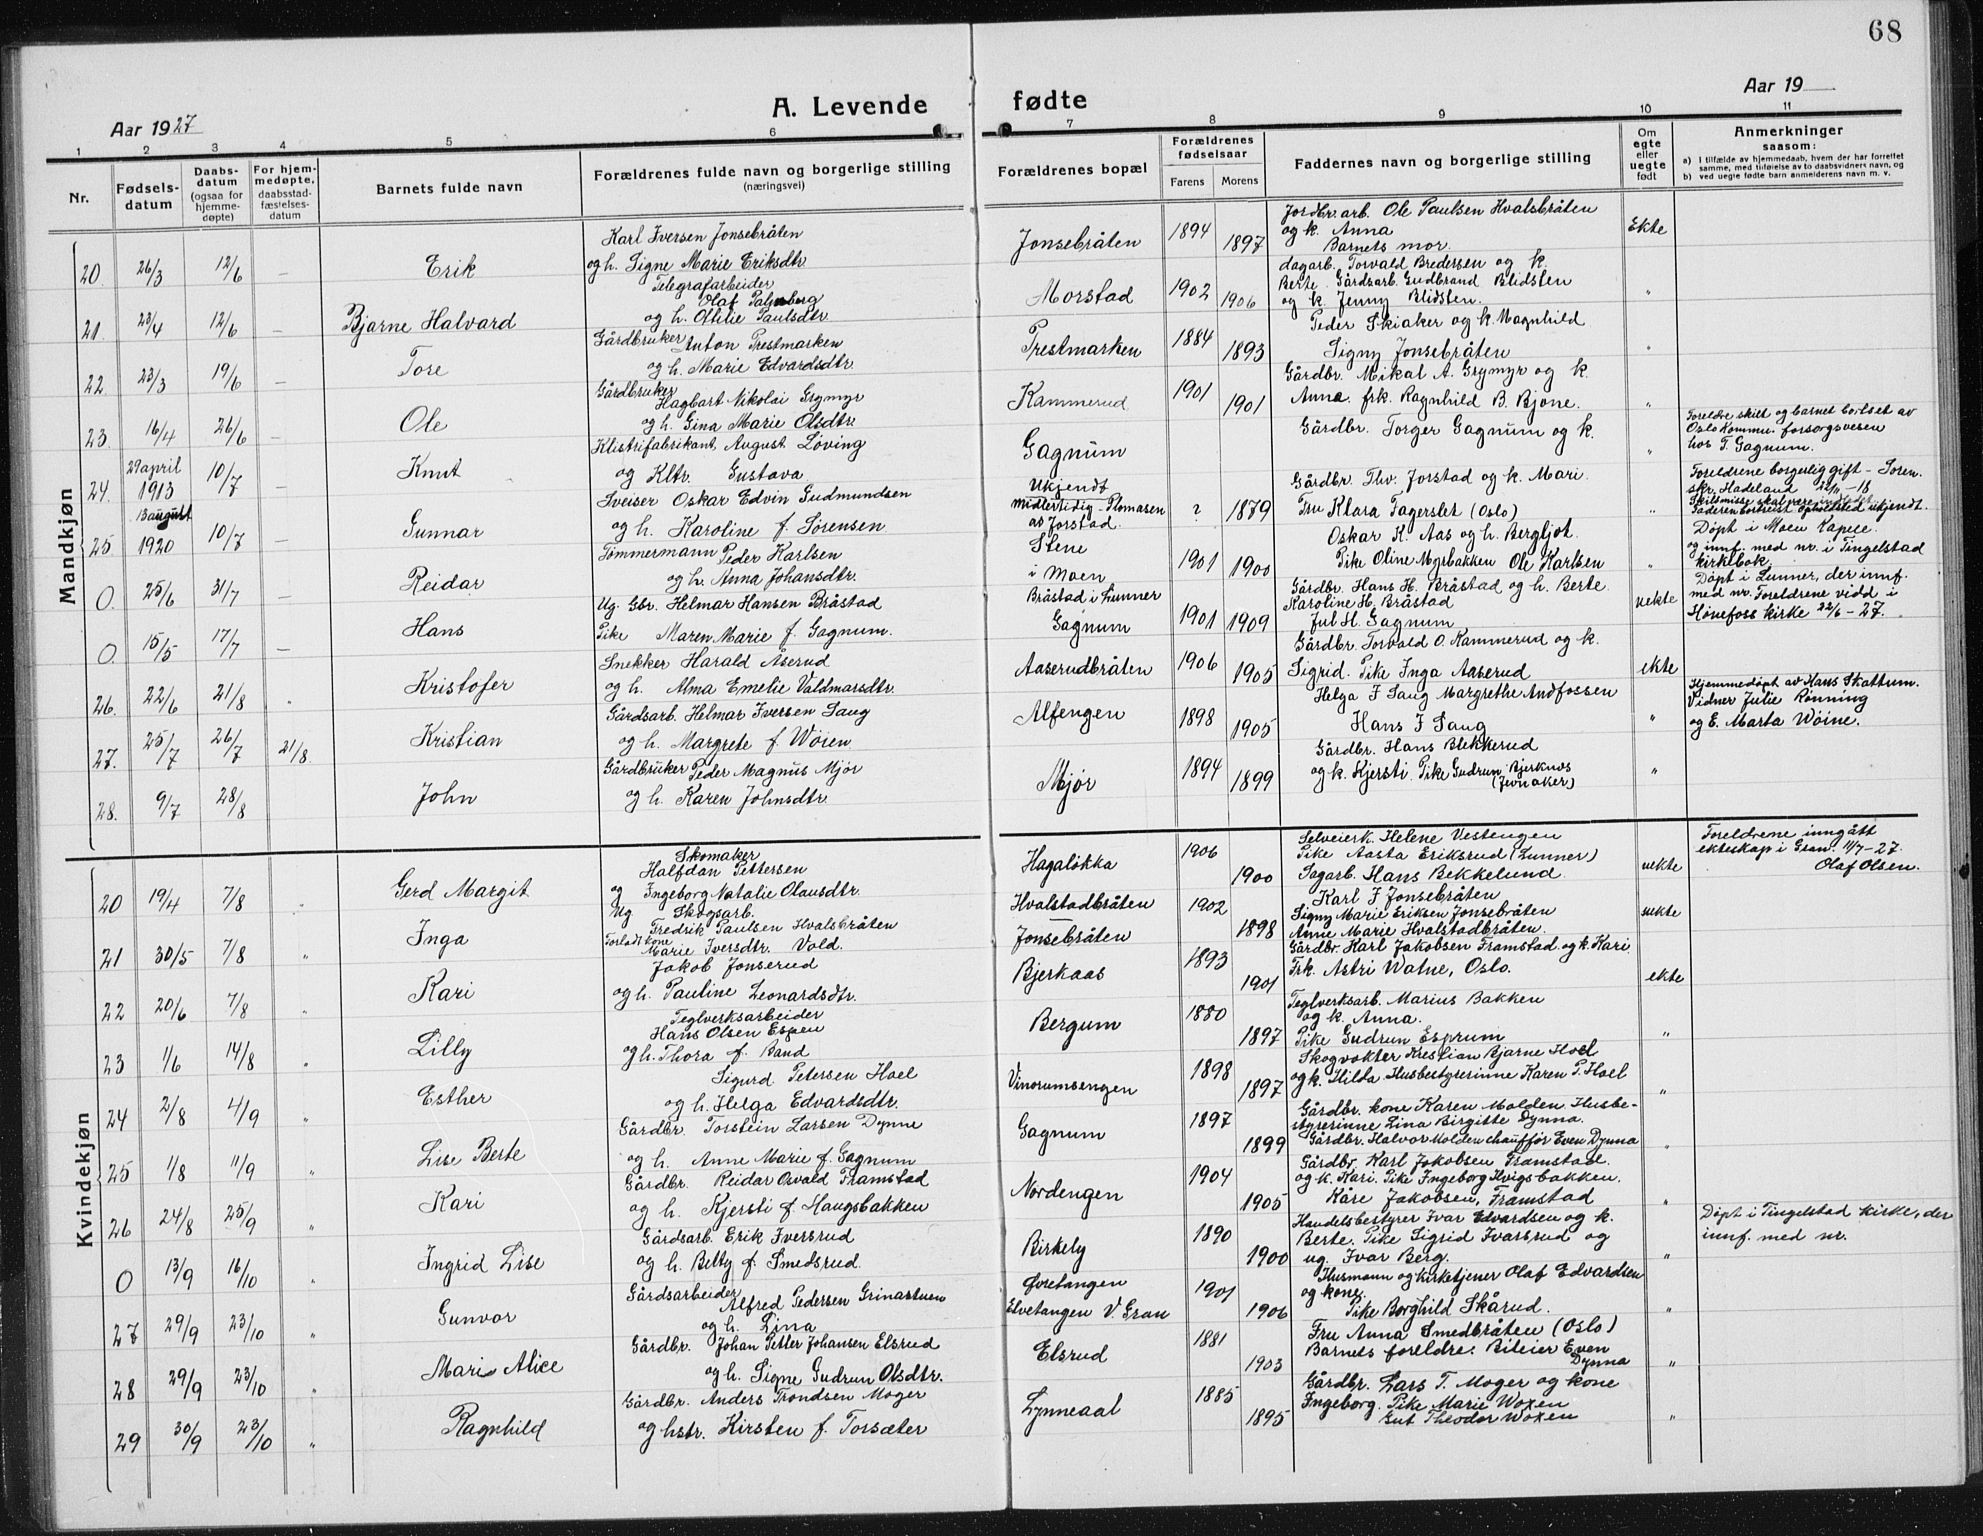 68
A. Levende fødte
Aar 1927
Aar 19
1 2 3 4 5 6 7 8 9 10 11
Nr.
Fødsels-datum
Daabs-datum (ogsaa for hjemme-døpte)
For hjem-medøpte, daabsstad-fæstelses-datum
Barnets fulde navn
Forældrenes fulde navn og borgerlige stilling (næringsvei)
Forældrenes bopæl
Forældrenes fødselsaar
Farens Morens
Faddernes navn og borgerlige stilling
Om egte eller uegte født
Anmerkninger saasom:
a) I tilfælde av hjemmedaab, hvem der har forrettet samme, med tilføielse av to daabsvidners navn, og
b) ved uegte fødte barn anmelderens navn m. v.
Mandkjøn
20. 26/3 12/6 — Erik
Karl Iversen Jonsebråten
og h. Signe Marie Eriksdtr.
Jonsebråten 1894 1897
Jordbr. arb. Ole Paulsen Hvalsbråten
og k. Anna
Barnets mor.
Ekte
21. 23/4 12/6 — Bjarne Halvard
Telegrafarbeider
Olaf Palmberg
og h. Othilie Paulsdtr.
Morstad 1902 1906
dagarb. Torvald Bredersen og k.
Berte. Gårdsarb. Gudbrand Blidsten
og k. Jenny Blidsten.
"
22. 23/3 19/6 — Tore
Gårdbruker
Anton Prestmarken
og h. Marie Edvardsdtr.
Prestmarken 1884 1893
Peder Skiaker og k. Magnhild
Signy Jonsebråten
"
23. 16/4 26/6 — Ole
Gårdbruker
Hagbart Nikolai Grymyr
og h. Gina Marie Olsdtr.
Kammerud 1901 1901
Gårdbr. Mikal A. Grymyr og k.
Anna. frk. Ragnhild B. Bjone.
"
24. 29 april 1913 10/7 — Knut
Klistrifabrikant August Løving
og Kltr. Gustava
Gagnum
Gårdbr. Torger Gagnum og k.
"
Foreldre skilt og barnet bortset av
Oslo Kommu. forsorgsvesen
hos T. Gagnum.
25 13 august 1920 10/7 — Gunnar
Sveiser Oskar Edvin Gudmundsen
og h. Karoline f. Sørensen
Ukjendt
midlertidig - Plomasen
av Jorstad.
? 1879
Gårdbr. Thv. Jorstad og k. Mari.
Fru Klara Fagerslet (Oslo)
"
Foreldrene borgerlig gift - Soren-
skr. Hadeland 12/11-18
Skilsmisse skal være indledet
Faderen bortreist opholdsted ukjendt.
0. 25/6 31/7 — Reidar
Tømmermann Peder Karlsen
og h. Anna Johansdtr.
Stene
i Moen
1901 1900
Oskar K. Aas og h. Bergljot.
Pike Oline Myrbakken Ole Karlsen
"
Døpt i Moen Kapele.
og innf. med nr. i Tingelstad
kirkebok.
0. 15/5 17/7 — Hans
Ug. Gbr. Helmar Hansen Bråstad
Pike Maren Marie f. Gagnum.
Bråstad i Lunner
Gagnum
1901 1909
Gårdbr. Hans H. Bråstad og h. Berte.
Karoline H. Bråstad
Jul H. Gagnum
uekte
Døpt i Lunner, der innf.
med nr. Foreldrene vidd i
Hønefoss kirke 22/6-27.
26. 22/6 21/8 " Kristofer
Snekker Harald Åserud
og h. Alma Emelie Valdmarsdtr.
Aaserudbråten 1906 1905
Gårdbr. Torvald O. Kammerud og k.
Sigrid. Pike Inga Aaserud
ekte
27. 25/7 26/7 21/8. Kristian
Gårdsarb. Helmar Iversen Saug
og h. Margrete f. Wøien.
Alfengen 1898 1905
Helga F Saug Margrethe Andfossen
Hans F Saug
"
Hjemmedøpt av Hans Skattum.
Vidner Julie Rønning
og E. Marta Wøine.
28. 9/7 28/8 John
Gårdbruker Peder Magnus Mjør
og h. Karen Johnsdtr.
Mjør 1894 1899
Gårdbr. Hans Blekkerud
og k. Kjersti. Pike Gudrun Bjerknes
(Jevnaker)
"
Kvindekjøn
20 19/4 7/8 " Gerd Margit
Skomaker
Halfdan Pettersen
og Ingeborg Natalie Olausdtr.
Hagaløkka 1906 1900
Selveierk. Helene Vestengen
Pike Aasta Eriksrud (Lunner)
Sagarb. Hans Bekkelund.
uekte
Foreldrene inngått
ekteskap i Gran. 11/7-27.
Olaf Olsen.
21 30/5 7/8 " Inga
Ug Skogsarb.
Fredrik Paulsen Hvalsbråten
Forladt kone
Marie Iversdtr. Vold.
Hvalstadbråten
Jonsebråten
1902 1898
Karl F Jonsebråten
Signy Marie Eriksen Jonsebråten
Anne Marie Hvalstadbråten.
uekte
22 20/6 7/8 " Kari
Jakob Jonserud
og h. Pauline Leonardsdtr.
Bjerkaas 1893 1901
Gårdbr. Karl Jakobsen Framstad og k. Kari.
Frk. Astri Watne, Oslo.
ekte
23 1/6 14/8 " Lilly
Teglverksarbeider
Hans Olsen Espen
og h. Thora f. Band
Bergum 1880 1897
Teglverksarb. Marius Bakken
og k. Anna.
Pike Gudrun Esprum
"
24 2/8 4/9 " Esther
Sigurd Petersen Hoel
og h. Helga Edvardsdtr.
Vinorumsengen 1898 1897
Skogvokter Krestian Bjarne Hoel
og k. Hilda. Husbestyrerinne Karen P. Hoel
"
25 1/8 11/9 " Lise Berte
Gårdbr. Torstein Larsen Dynne
og h. Anne Marie f. Gagnum
Gagnum 1897 1899
Gårdbr. kone Karen Molden. Husbe-
styrerinne Lina Birgitte Dynna.
Gårdbr. Halvor Molden chauffør Even Dynna
"
26 24/8 25/9 " Kari
Gårdbr. Reidar Osvald Framstad
og h. Kjersti f. Haugsbakken
Nordengen 1904 1905
Gårdbr. Karl Jakobsen Framstad.
og k. Kari. Pike Ingeborg Hvigsbakken.
Kåre Jakobsen, Framstad
"
0 13/9 16/10 " Ingrid Lise
Gårdsarb. Erik Iversrud
og h. Betty f. Smedsrud.
Birkely 1890 1900
Handelsbestyrer Ivar Edvardsen og k.
Berte. Pike Sigrid Ivarsrud og
ug. Ivar Berg.
"
Døpt i Tingelstad kirke, der
innf. med nr.
27 29/9 23/10 " Gunvor
Gårdsarbeider
Alfred Pedersen Grinastuen
og h. Lina
Øvretangen
Elvetangen V. Gran
1901 1906
Husmann og kirketjener Olaf Edvardsen
og kone.
Pike Borghild Skårud.
"
28 29/9 23/10 " Mari Alice
Gårdbr. Johan Petter Johansen Elsrud
og h. Signe Gudrun Olsdtr.
Elsrud 1881 1903
Fru Anna Smedbråten (Oslo)
Barnets foreldre. Bileier Even
Dynna
"
29 30/9 23/10 " Ragnhild
Gårdbr. Anders Trondsen Moger
og hstr. Kirsten f. Torsæter
Lynneaal 1885 1895
Gårdbr. Lars T. Moger og kone
Ingeborg. Pike Marie Woxen
Gut Theodor Woxen
"